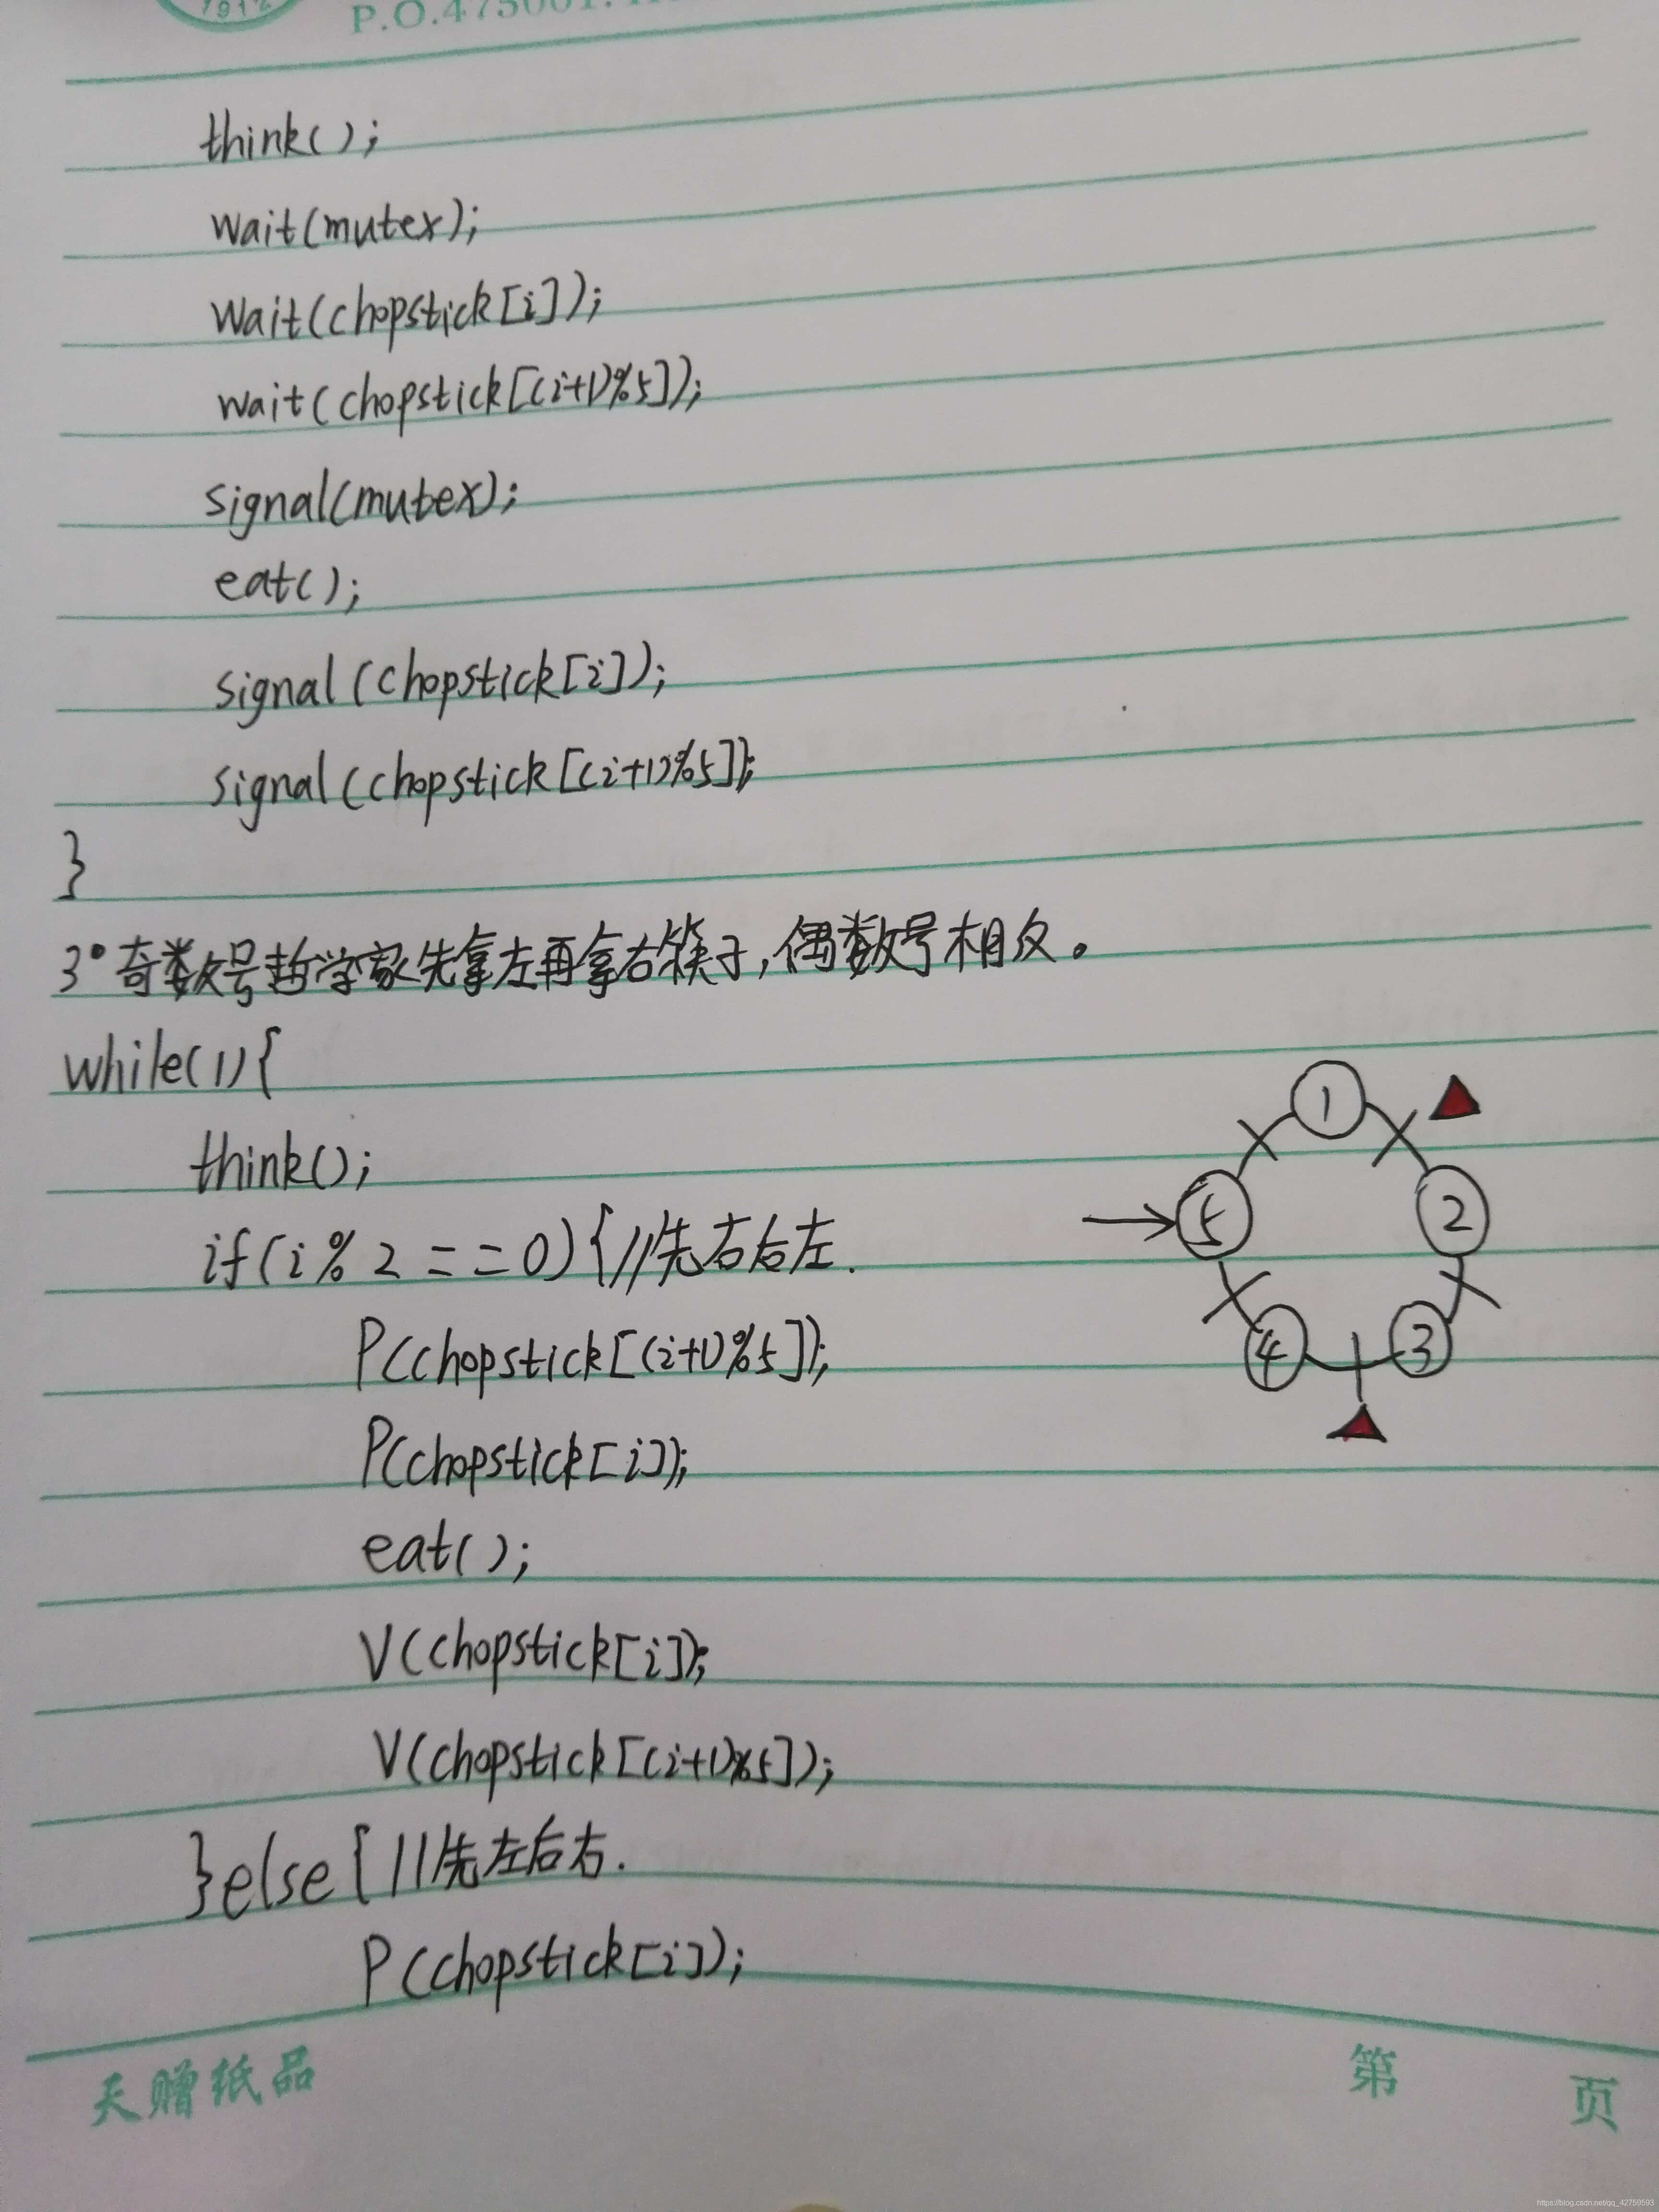 1912
think();
wait(mutex);
wait(chopstick[i]);
wait(chopstick[(i+1)%5]);
signal(mutex);
eat();
signal(chopstick[i]);
signal(chopstick[(i+1)%5]);
}
3°奇数号哲学家先拿左再拿右筷子,偶数号相反。
while(1){
think();
if(i%2==0){//先右后左.
P(chopstick[(i+1)%5]);
P(chopstick[i]);
eat();
V(chopstick[i]);
V(chopstick[(i+1)%5]);
}else{//先左后右.
P(chopstick[i]);
1
5
2
4
3
天赠纸品
第 页
https://blog.csdn.net/qq_42759593